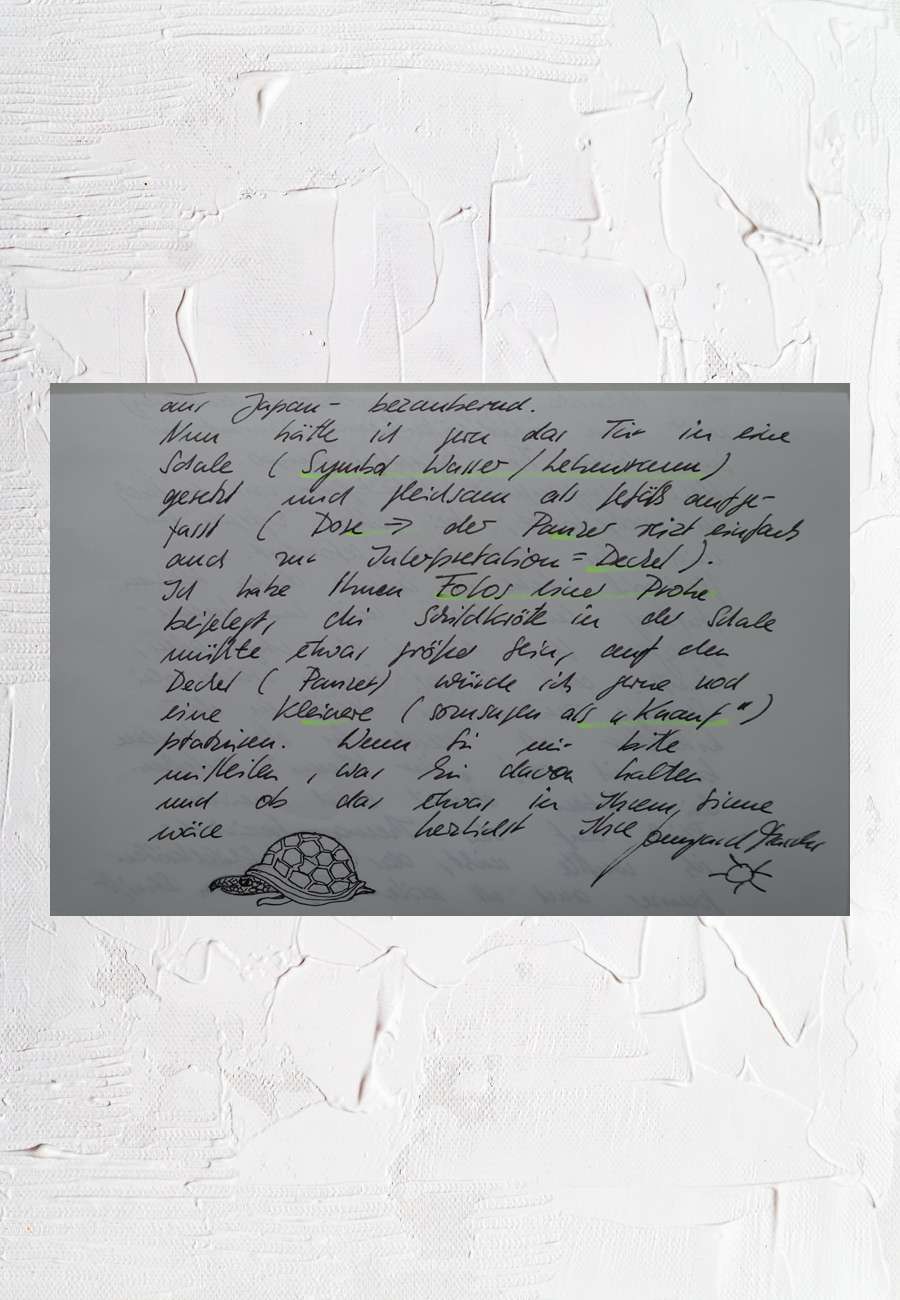 aus Japan - bezaubernd.
Nun hätte ich gern das Tier in eine
Schale ( Symbol Wasser / Lebensraum )
gesetzt und gleichsam als Gefäß aufge-
fasst ( Dose => der Panzer reizt einfach
auch zur Interpretation = Deckel ).
Ich habe Ihnen Fotos einer Probe
beigelegt, die Schildkröte in der Schale
müßte etwas größer sein, auf den
Deckel ( Panzer) würde ich gerne noch
eine kleinere ( sozusagen als „Knauf“ )
platzieren. Wenn Sie mir bitte
mitteilen, was Sie davon halten
und ob das etwas in Ihrem Sinne
wäre herzlichst Ihre